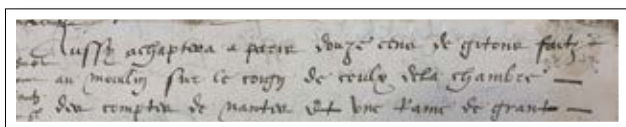 Aussy achaptera a paris douze cens de gitons faitz
au moulin sur le coing de ceulx dela chambre
des comptes de nantes Et vne Rame de grant